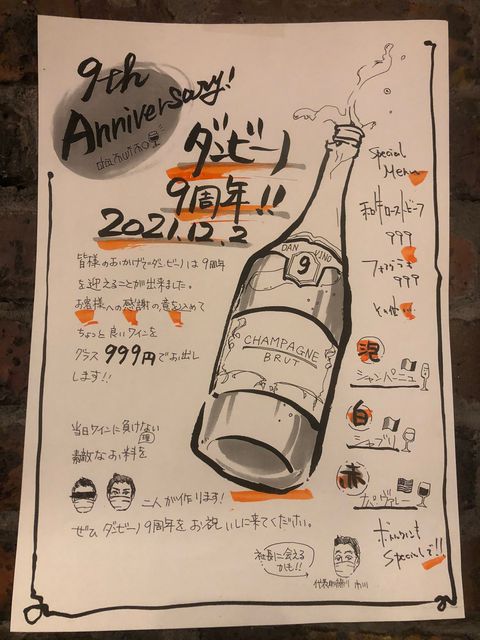 9th
Anniversary!
ダンビーノ
9周年!!
2021.12.2
皆様のおかげでダンビーノは9周年
を迎えることが出来ました。
お客様への感謝の意を込めて
ちょっと良いワインを
グラス999円でお出し
します!!
当日ワインに負けない
素敵なお料理を
二人が作ります!
ぜひダンビーノ9周年をお祝いしに来てください。
社長に会える
かも!!
DAN VINO
9
CHAMPAGNE
BRUT
Special
Menu
和牛ローストビーフ
999
フォアグラ
999
その他
泡
シャンパーニュ
白
シャブリ
赤
ナパヴァレー
Specialで!!